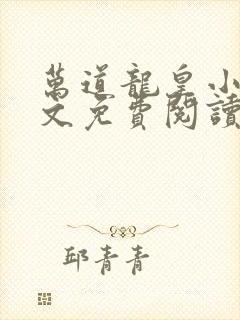 萬道龍皇小
文免費閱讀
邱青青